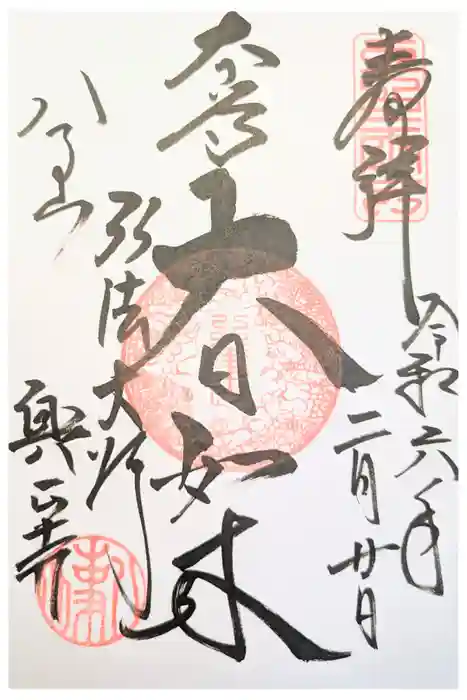 奉拝
令和六年
二月廿日
本尊
大日如来
弘法大師
八事山
興正寺